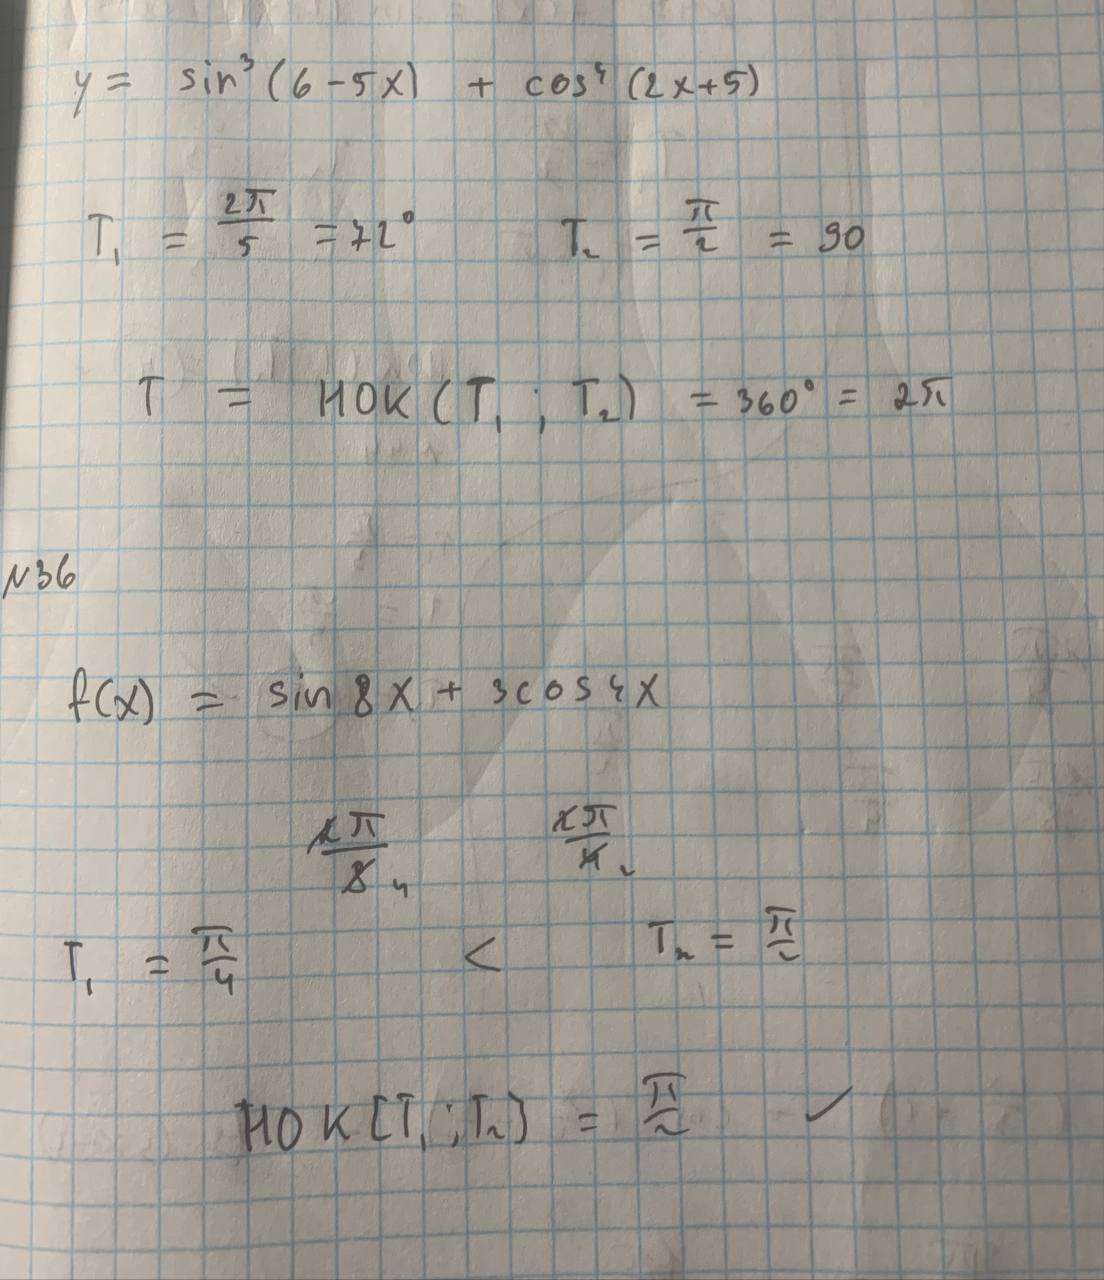 y = sin³(6-5x) + cos⁴(2x+5)
T₁ = 2π/5 = 72° T₂ = π/2 = 90
T = НОК(T₁; T₂) = 360° = 2π
N36
f(x) = sin 8x + 3cos4x
2π/8 4 2π/4 2
T₁ = π/4 < T₂ = π/2
НОК[T₁; T₂] = π/2 ✓